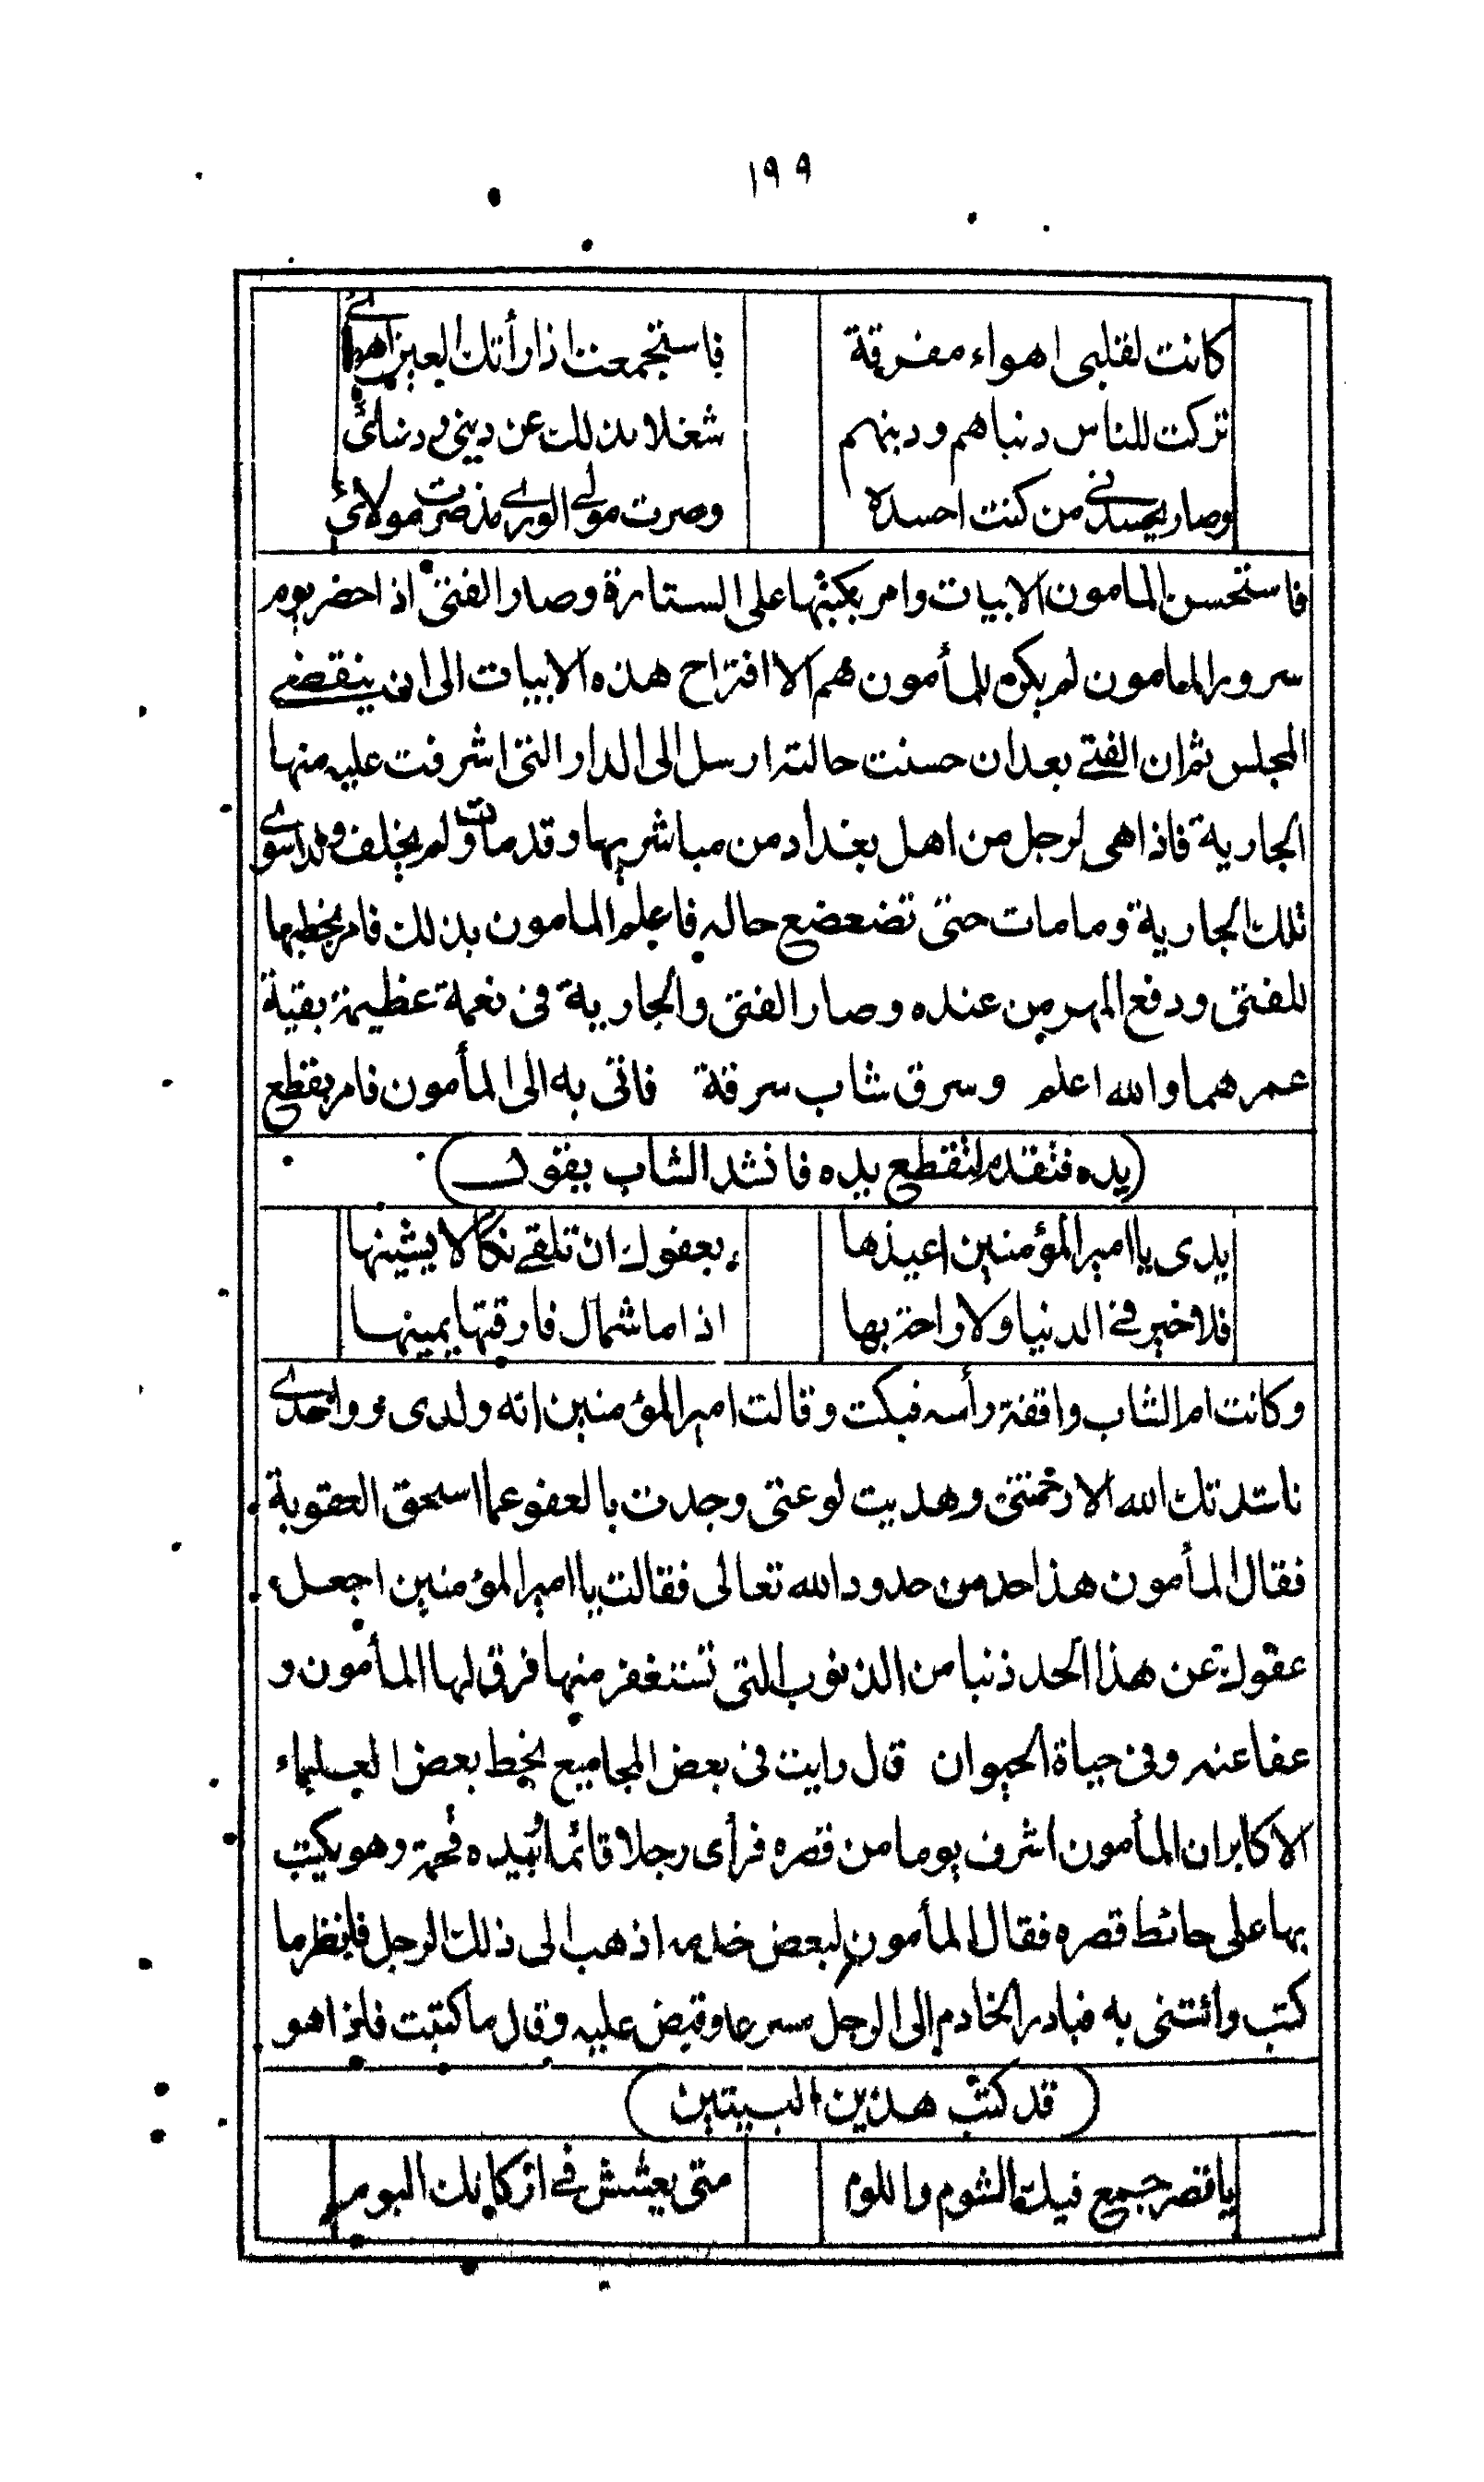 ١٩٩
كانت لقلبى اهواء مفرقة فاستجمعت اذ رأتك العين اهوائى
تركت للناس دنياهم ودينهم شغلا بذلك عن دينى ودنيائى
وصار يحسدنى من كنت احسده وصرت مولى الورى مذ صرت مولائى
فاستحسن المامون الابيات وامر بكتبها على الستارة وصار الفتى اذا حضر يوم
سرور المامون لم يكن للمأمون هم الا اقتراح هذه الابيات الى ان ينقضى
المجلس ثم ان الفتى بعد ان حسنت حالته ارسل الى الدار التى اشرفت عليه منها
الجارية فاذا هى لرجل من اهل بغداد من مباشريها وقد مات ولم يخلف ولدا سوى
تلك الجارية وما مات حتى تضعضع حاله فاعلم المامون بذلك فامر بخطبها
للفتى ودفع المهر من عنده وصار الفتى والجارية فى نعمة عظيمة بقية
عمرهما والله اعلم وسرق شاب سرقة فاتى به الى المأمون فامر بقطع
(يده فتقدم لتقطع يده فانشد الشاب يقول)
يدى يا امير المؤمنين اعيذها بعفوك ان تلقى نكالا يشينها
فلا خير فى الدنيا ولا راحة بها اذا ما شمال فارقتها يمينها
وكانت ام الشاب واقفة رأسه فبكت وقالت امير المؤمنين انه ولدى وواحدى
ناشدتك الله الا رحمتنى وهديت لوعتى وجدت بالعفو عما استحق العقوبة
فقال المأمون هذا حد من حدود الله تعالى فقالت يا امير المؤمنين اجعل
عفوك عن هذا الحد ذنبا من الذنوب التى تستغفر منها فرق لها المأمون و
عفا عنه وفى حياة الحيوان قال رايت فى بعض المجاميع بخط بعض العلماء
الاكابر ان المأمون اشرف يوما من قصره فرأى رجلا قائما بيده فحمة وهو يكتب
بها على حائط قصره فقال المأمون لبعض خدمه اذهب الى ذلك الرجل فانظر ما
كتب وائتنى به فبادر الخادم الى الرجل مسرعا وقبض عليه وقال ما كتبت فاذا هو
(قد كتب هذين البيتين)
يا قصر جمع فيك الشوم واللوم متى يعشش فى اركانك البوم